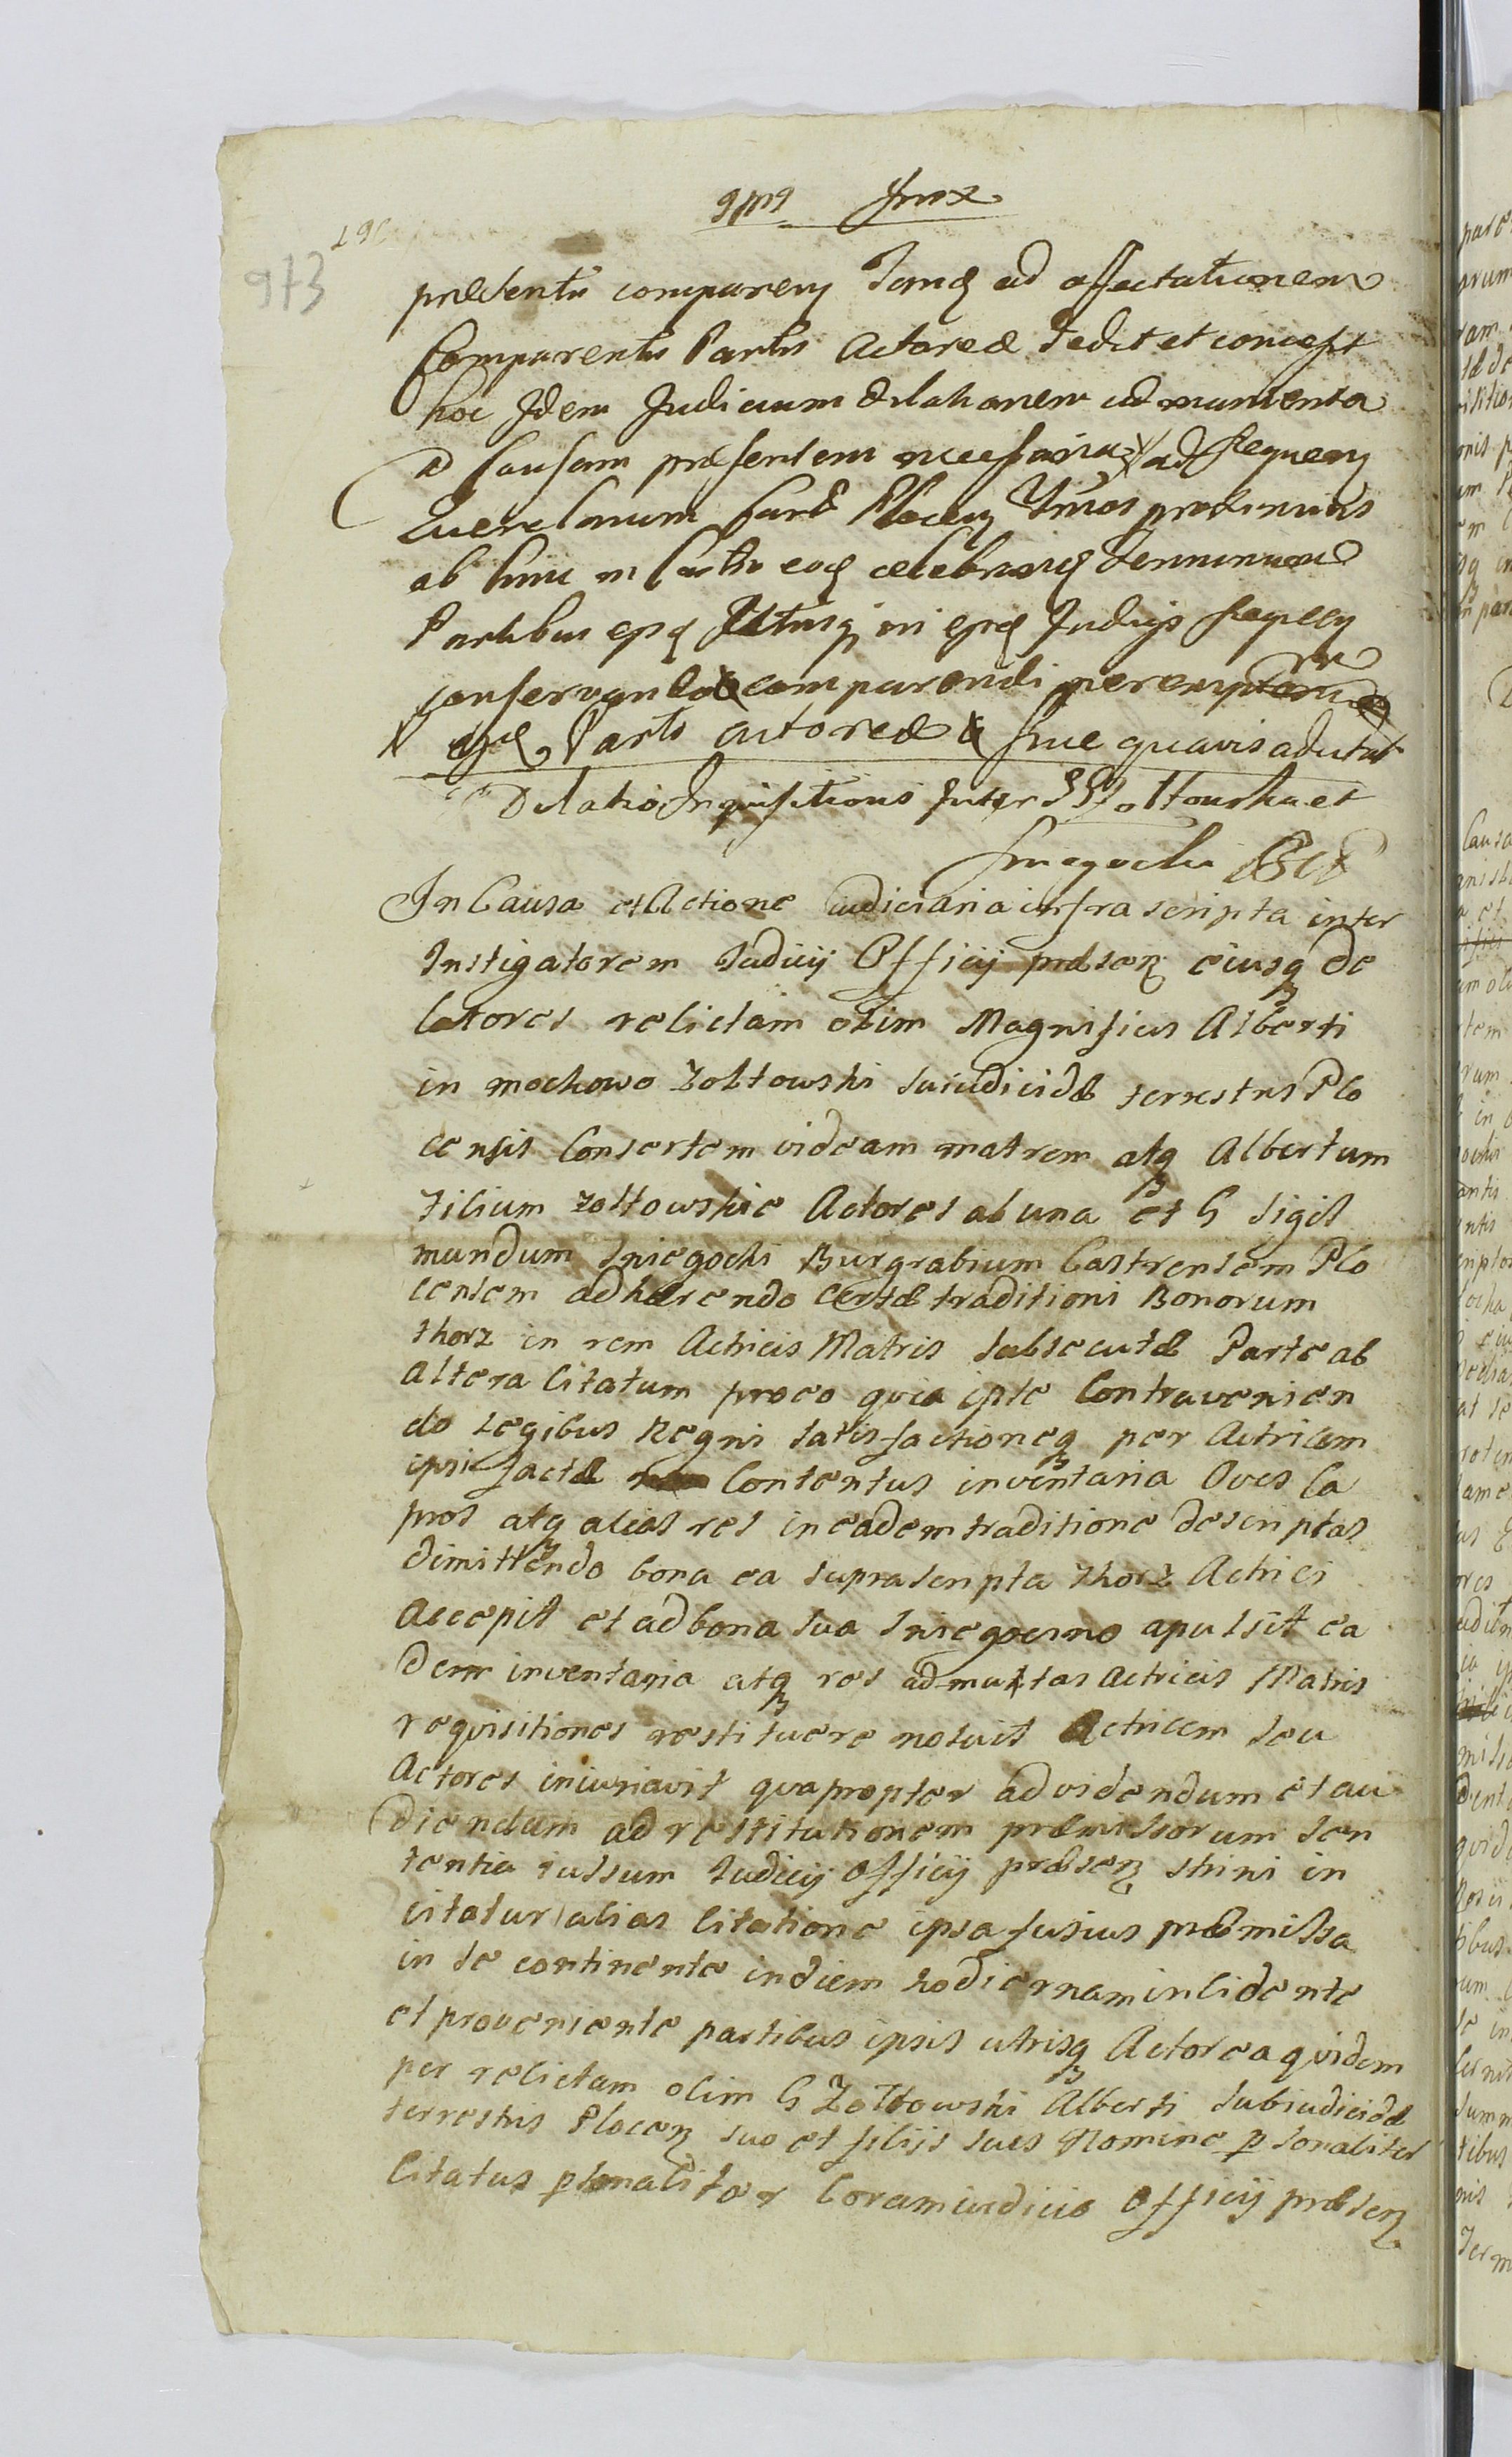 973
præsentis comparen Tandem ad affectationem
Comparentis Partis Actoreæ dedit et concessit
hoc Idem Judicium dilationem ad munimenta
ad Causam præsentem necessaria ad sequen
Querelarum Plocen Tmos proximius
ab hinc in
Partibus Judicijs sequen
conservando comparendi
Partis actoreæ sine quavis
Dilatio Inquisitionis Inter GG Zołtowska et
Sniegocki
In Causa et Actione iudiciaria infra scripta inter
Instigatorem Iudicij Officij præsen eiusq de
latores relictam olim Magnificus Alberti
in mochowo Zoltowski Subiudicidæ terrestris Plo
censis Consortem viduam matrem atq Albertum
Filium Zoltowskie Actores ab una et G Sigis
mundum Sniegocki Burgrabium Castrensem Plo
censem adhærendo Certæ traditioni Bonorum
thorz in rem Actricis Matris subsecutæ Parte ab
altera Citatum proeo quia ipse Contravenien
do Legibus Regni satisfactioneq per Actricem
ipsi factæ Contentus inventaria Oves Ca
pros atq alias res in eadem traditione descriptas
dimittendo bona ea suprascripta thorz Actrici
Accepit et ad bona sua Sniegocino apulsit ea
dem inventaria atq res ad multas Actricis Matris
requisitiones restituere noluit Actricem seu
Actores iniuriavit quapropter ad videndum et au
diendum ad restitutionem præmissorum sen
tentia iussum Iudicij Officij præsen in
citatur alias Citatione ipsa fusius præmissa
in se continente in diem hodiernam incidente
et proveniente partibus ipsis utrisq Actorea quidem
per relictam olim G Zołtowski Alberti Subiudicidæ
terrestris Plocen suo et filij sues Nomine psonaliter
Citatus psonaliter Coram iudicio Officij præsen